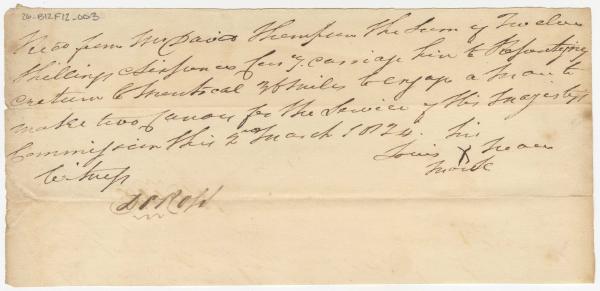 26-B12F12-003
Recd from Mr David Thompson the Sum of Twelve
Shillings & Sixpence Curry carriage hire to Pointe
& return to Montreal 36 Miles to engage a Man to
make two Canoes for the Service of His Majestys
Commission this 2nd March 1824. his
Louis X
Witness mark